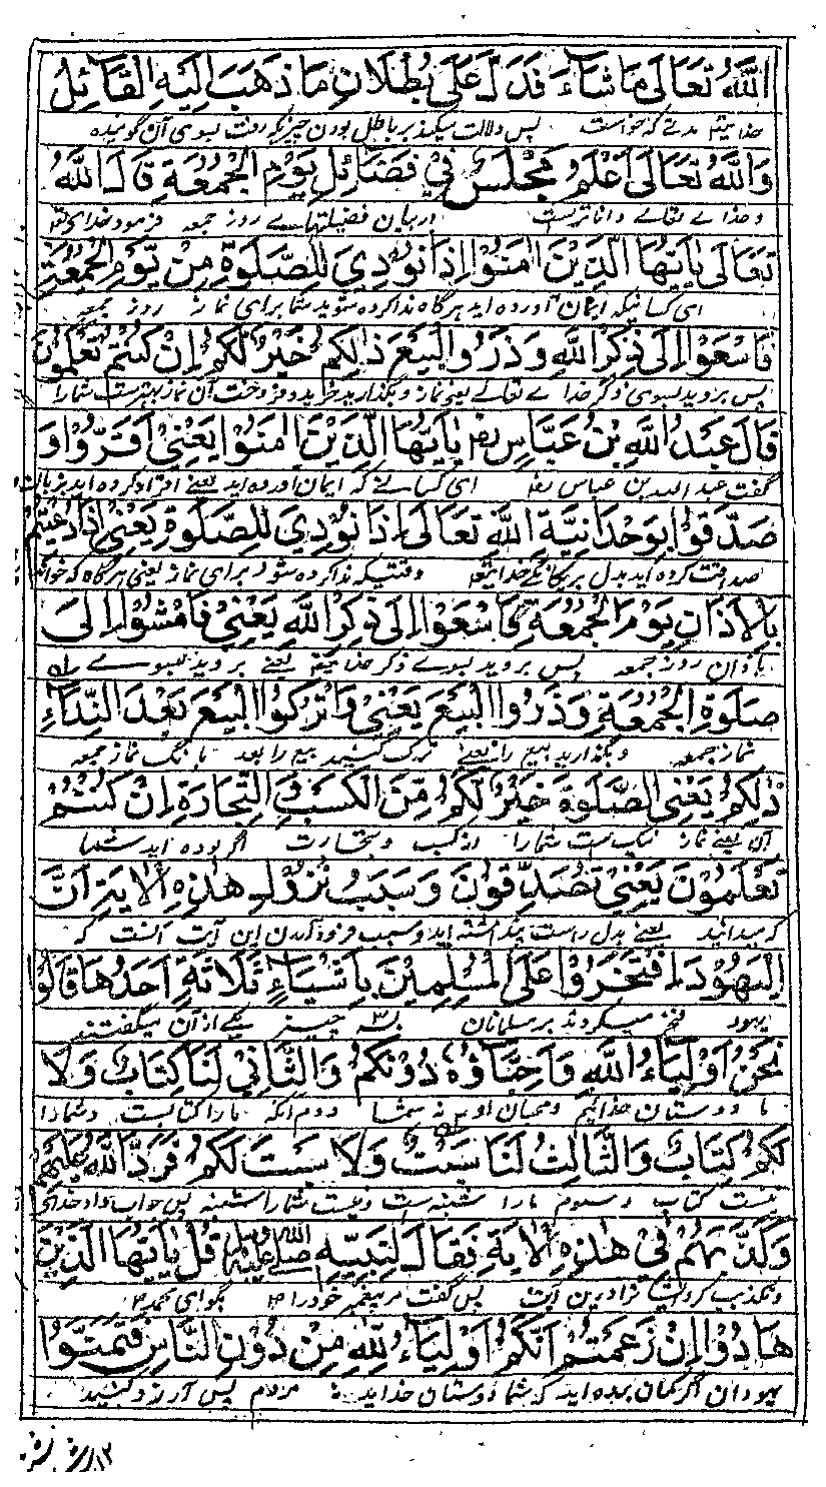 اللّٰهُ تَعَالٰى مَا شَآءَ فَدَلَّ عَلٰى بُطْلَانِ مَا ذَهَبَ اِلَيْهِ الْقَآئِلُ
خدایتعا مدتے که خواست پس دلالت میکند بر باطل بودن چیزیکه رفت بسوی آن گوینده
وَاللّٰهُ تَعَالٰى اَعْلَمُ مَجْلِسٌ فِيْ فَضَآئِلِ يَوْمِ الْجُمُعَةِ قَالَ اللّٰهُ
و خداے تعالے داناتر است در بیان فضیلتهاے روز جمعه فرمود خدای تعا
تَعَالٰى يٰاَيُّهَا الَّذِيْنَ اٰمَنُوْا اِذَا نُوْدِيَ لِلصَّلٰوةِ مِنْ يَّوْمِ الْجُمُعَةِ
ای کسانیکه ایمان آورده اید هرگاه ندا کرده شوید شما برای نماز روز جمعه
فَاسْعَوْا اِلٰى ذِكْرِ اللّٰهِ وَذَرُوا الْبَيْعَ ذٰلِكُمْ خَيْرٌ لَّكُمْ اِنْ كُنْتُمْ تَعْلَمُوْنَ
پس بروید بسوی ذکر خداے تعالے یعنی نماز و بگذارید خرید و فروخت آن نماز بهتر ست شمارا
قَالَ عَبْدُ اللّٰهِ بْنُ عَبَّاسٍ رض يٰاَيُّهَا الَّذِيْنَ اٰمَنُوْا يَعْنِيْ اَقَرُّوْا وَ
گفت عبد الله بن عباس رض ای کسانے که ایمان آورده اید یعنے اقرار کرده اید بزبان
صَدَّقُوْا بِوَحْدَانِيَّةِ اللّٰهِ تَعَالٰى اِذَا نُوْدِيَ لِلصَّلٰوةِ يَعْنِيْ اِذَا دُعِيْتُمْ
صداقت کرده اید بدل بر یگانگے خدایتعا وقتیکه ندا کرده شود برای نماز یعنی هرگاه که خوانده
بِالْاَذَانِ يَوْمَ الْجُمُعَةِ فَاسْعَوْا اِلٰى ذِكْرِ اللّٰهِ يَعْنِيْ فَامْشُوْا اِلٰى
باذان روز جمعه پس بروید بسوے ذکر خدایتعا یعنے بروید بسوے راه
صَلٰوةِ الْجُمُعَةِ وَذَرُوا الْبَيْعَ يَعْنِيْ وَاتْرُكُوا الْبَيْعَ بَعْدَ النِّدَآءِ
نماز جمعه و بگذارید بیع را یعنے ترک کنید بیع را بعد بانگ نماز جمعه
ذٰلِكُمْ يَعْنِي الصَّلٰوةَ خَيْرٌ لَّكُمْ مِّنَ الْكَسْبِ وَ التِّجَارَةِ اِنْ كُنْتُمْ
آن یعنے نماز نیک ست شمارا از کسب و تجارت اگر بوده اید شما
تَعْلَمُوْنَ يَعْنِيْ تَصْدِقُوْنَ وَسَبَبُ نُزُوْلِ هٰذِهِ الْاٰيَةِ اَنَّ
که میدانید یعنے بدل راست پنداشته اید و سبب فرود آمدن این آیت آنست که
الْيَهُوْدَ افْتَخَرُوْا عَلَى الْمُسْلِمِيْنَ بِاَشْيَآءٍ ثَلَاثَةٍ اَحَدُهَا قَالُوْا
یهود فخر میکردند بر مسلمانان بسه چیز یکے از آن میگفتند
نَحْنُ اَوْلِيَآءُ اللّٰهِ وَاَحِبَّآؤُهٗ دُوْنَكُمْ وَالثَّانِيْ لَنَا كِتَابٌ وَلَا
ما دوستان خدائیم و محبان او نه شما دوم آنکه مارا کتابست و شمارا
لَكُمْ كِتَابٌ وَالثَّالِثُ لَنَا سَبْتٌ وَلَا سَبْتَ لَكُمْ فَرَدَّ اللّٰهُ عَلَيْهِمْ
نیست کتاب و سوم مارا شنبه ست و نیست شمارا شنبه پس جواب داد خدای
وَكَذَّبَهُمْ فِيْ هٰذِهِ الْاٰيَةِ فَقَالَ لِنَبِيِّهٖ صلى الله عليه وسلم قُلْ يٰاَيُّهَا الَّذِيْنَ
و تکذیب کرد درین آیت پس گفت مر پیغمبر خود را ص بگو ای محمد ص
هَادُوْا اِنْ زَعَمْتُمْ اَنَّكُمْ اَوْلِيَآءُ لِلّٰهِ مِنْ دُوْنِ النَّاسِ فَتَمَنَّوُا
یهودان اگر گمان برده اید که شما دوستان خداید نه مردم پس آرزو کنید